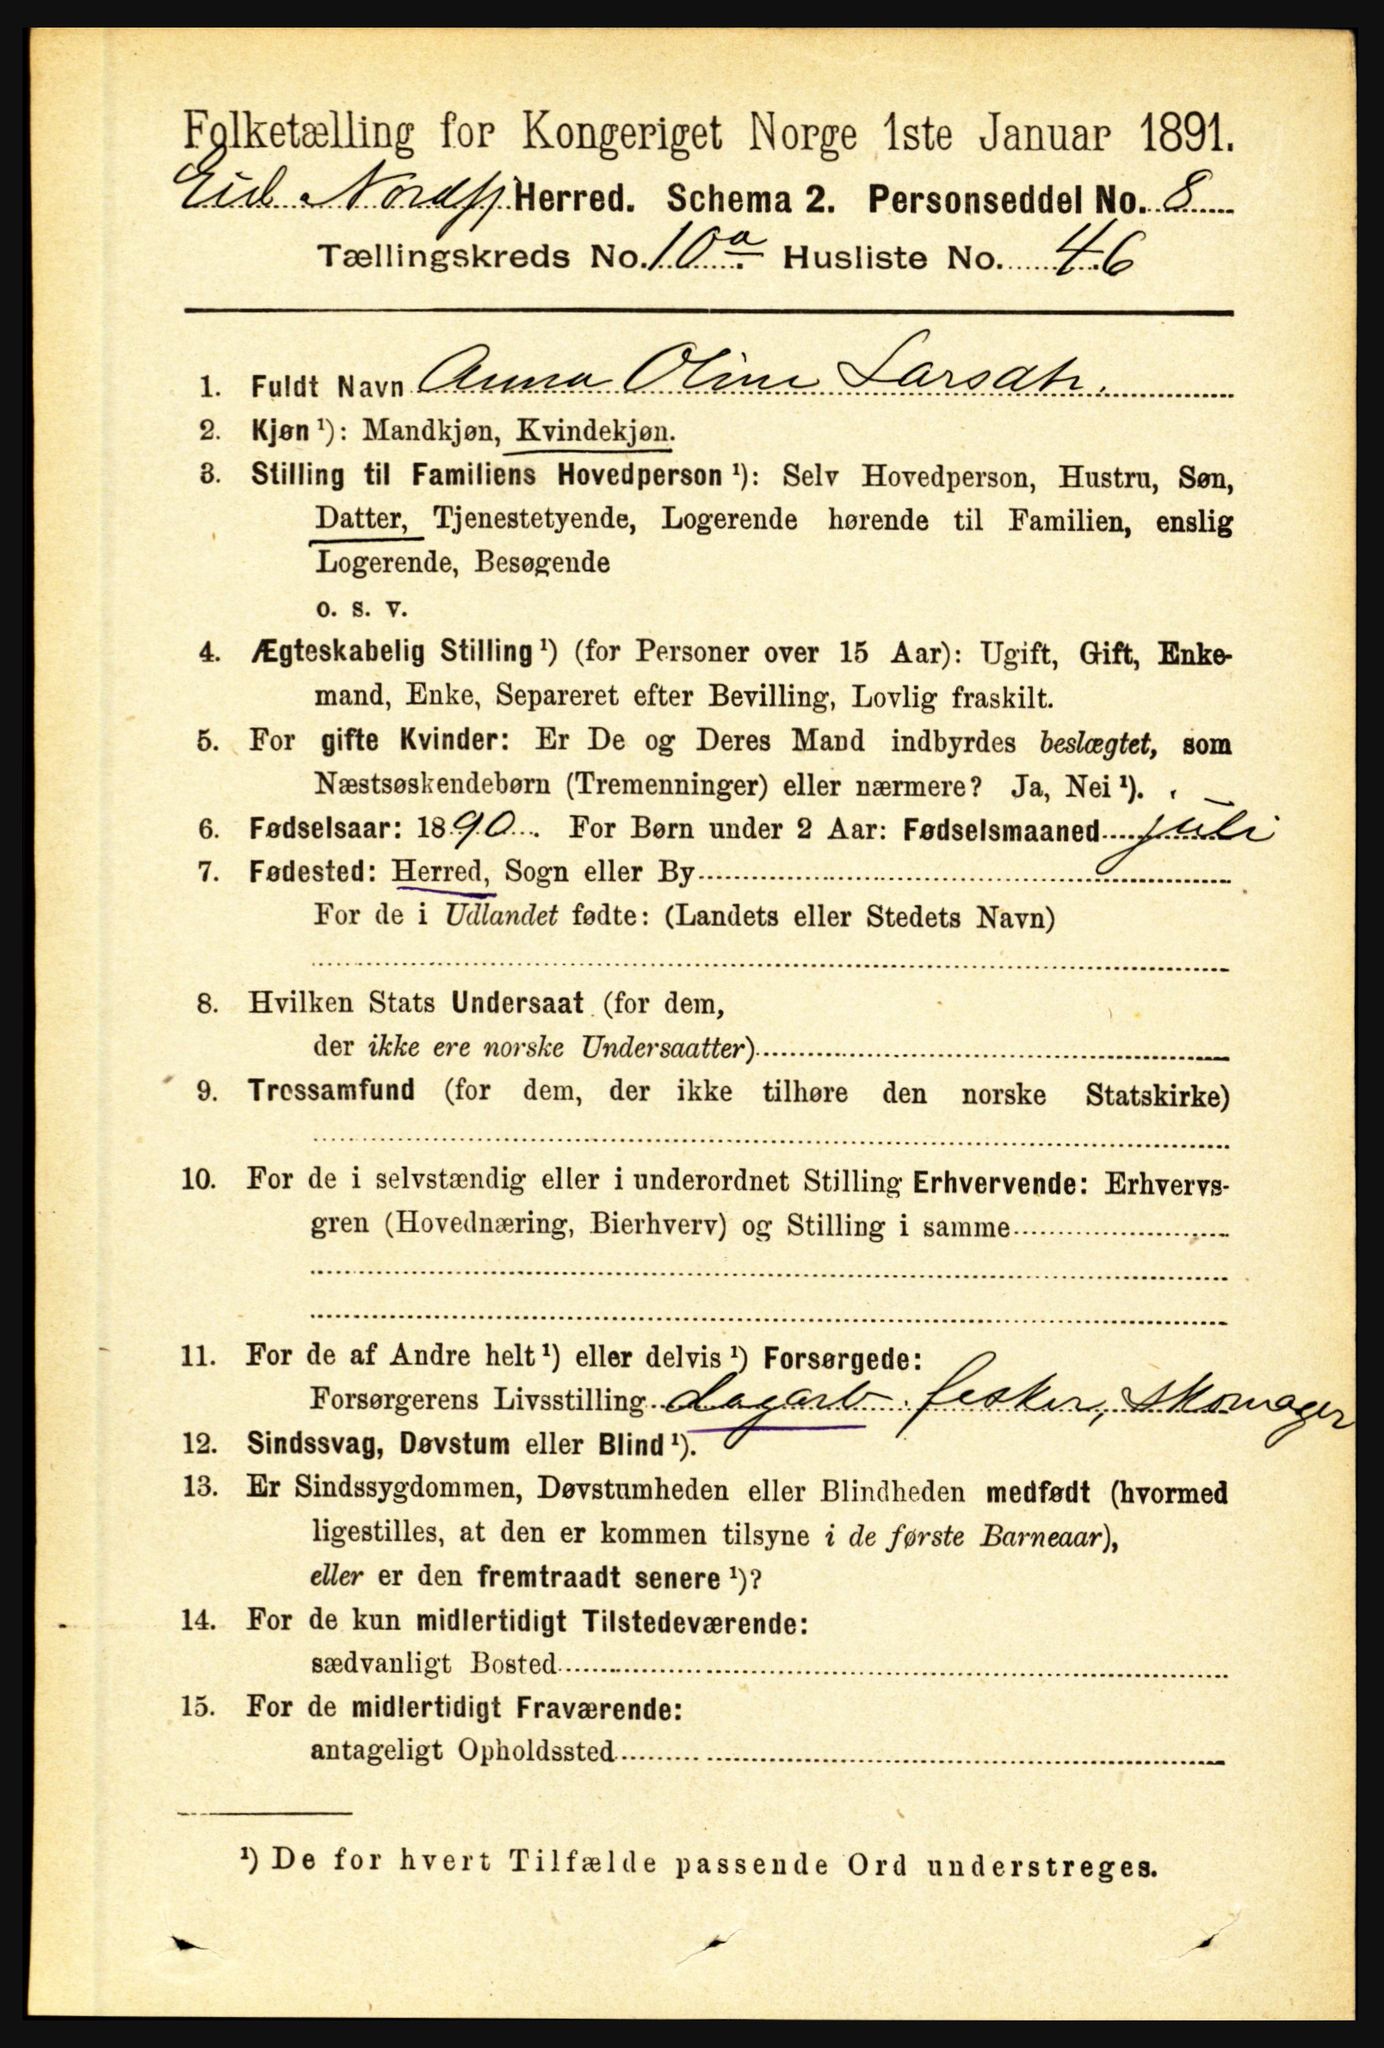 Folketælling for Kongeriget Norge 1ste Januar 1891.
Eid Nordfj Herred. Schema 2. Personseddel No. 8
Tællingskreds No. 10a Husliste No. 46
1. Fuldt Navn Anna Oline Larsdtr.
2. Kjøn¹): Mandkjøn, Kvindekjøn.
3. Stilling til Familiens Hovedperson¹): Selv Hovedperson, Hustru, Søn,
Datter, Tjenestetyende, Logerende hørende til Familien, enslig
Logerende, Besøgende
o. s. v.
4. Ægteskabelig Stilling¹) (for Personer over 15 Aar): Ugift, Gift, Enke-
mand, Enke, Separeret efter Bevilling, Lovlig fraskilt.
5. For gifte Kvinder: Er De og Deres Mand indbyrdes beslægtet, som
Næstsøskendebørn (Tremenninger) eller nærmere? Ja, Nei¹).
6. Fødselsaar: 1890. For Børn under 2 Aar: Fødselsmaaned juli
7. Fødested: Herred, Sogn eller By
For de i Udlandet fødte: (Landets eller Stedets Navn)
8. Hvilken Stats Undersaat (for dem,
der ikke ere norske Undersaatter)
9. Trossamfund (for dem, der ikke tilhøre den norske Statskirke)
10. For de i selvstændig eller i underordnet Stilling Erhvervende: Erhvervs-
gren (Hovednæring, Bierhverv) og Stilling i samme
11. For de af Andre helt¹) eller delvis¹) Forsørgede:
Forsørgerens Livsstilling dagarb. fisker, skomager
12. Sindssvag, Døvstum eller Blind¹).
13. Er Sindssygdommen, Døvstumheden eller Blindheden medfødt (hvormed
ligestilles, at den er kommen tilsyne i de første Barneaar),
eller er den fremtraadt senere¹)?
14. For de kun midlertidigt Tilstedeværende:
sædvanligt Bosted
15. For de midlertidigt Fraværende:
antageligt Opholdssted
¹) De for hvert Tilfælde passende Ord understreges.